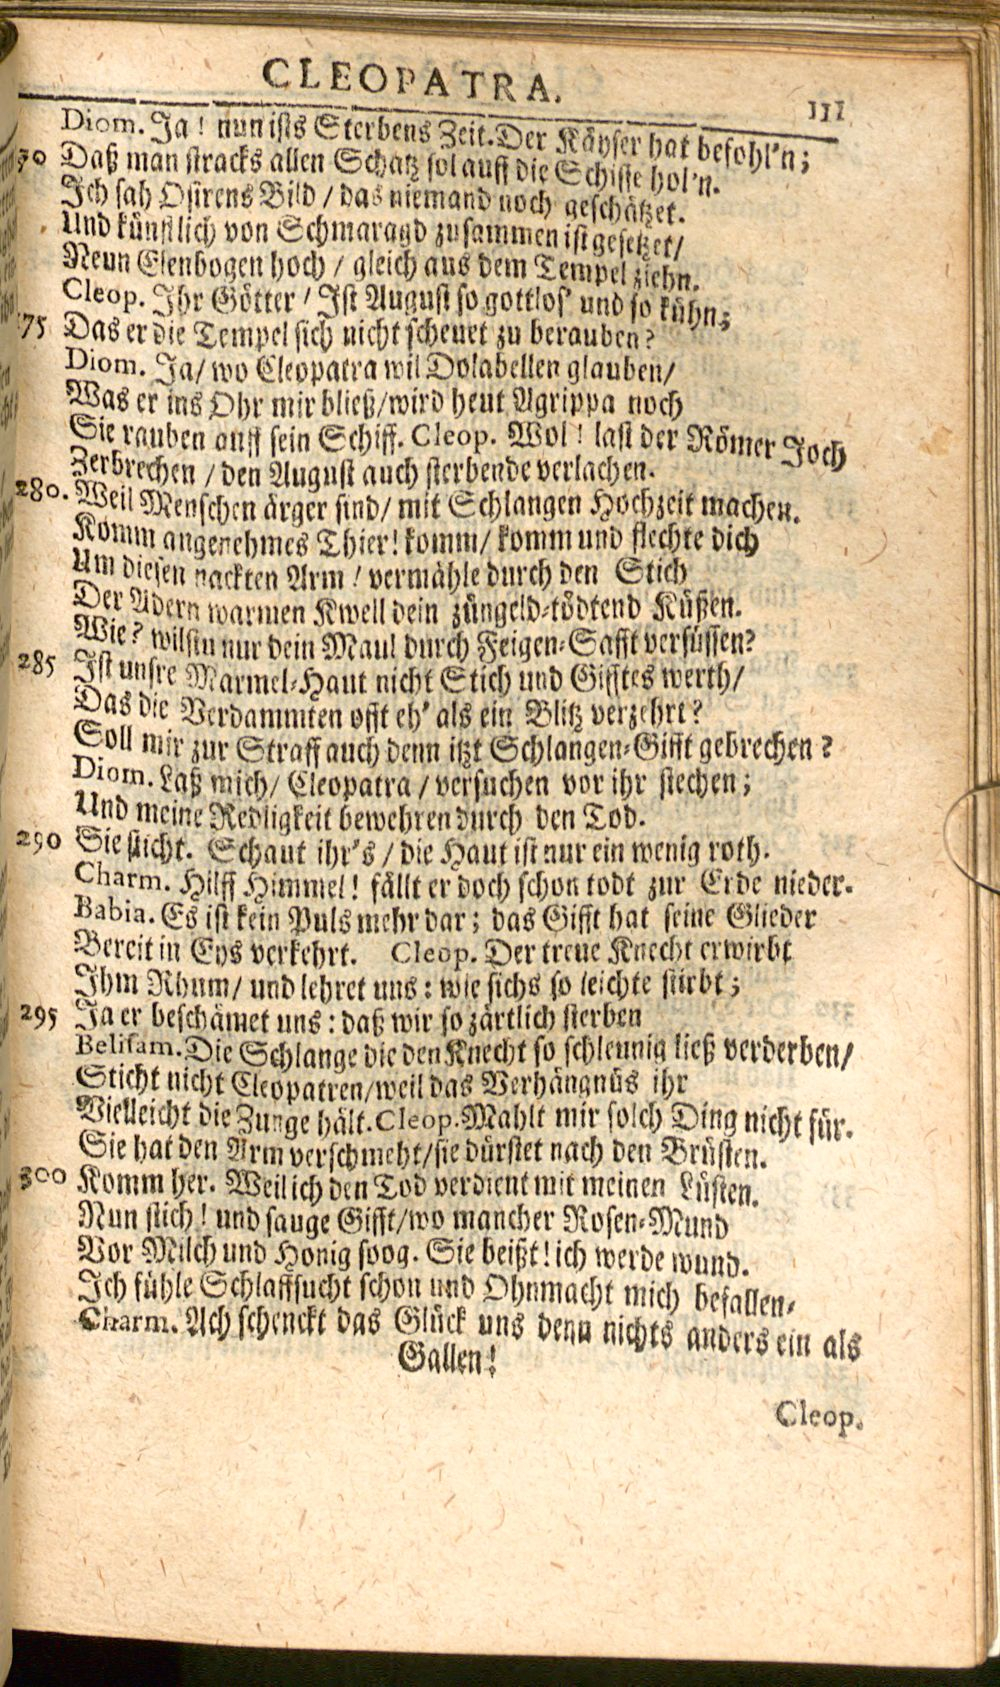 CLEOPATRA.
111
Diom. Ja! nun ists Sterbens Zeit. Der Käyser hat befohl'n;
70 Daß man stracks allen Schatz sol auff die Schiffe hol'n.
Ich sah Osirens Bild / das niemand noch geschätzet.
Und künstlich von Schmaragd zusammen ist gesetzet/
Neun Elenbogen hoch / gleich aus dem Tempel ziehn.
Cleop. Ihr Götter / Ist August so gottlos' und so kühn;
75 Das er die Tempel sich nicht scheuet zu berauben?
Diom. Ja/ wo Cleopatra wil Dolabellen glauben/
Was er ins Ohr mir bließ/wird heut Agrippa noch
Sie rauben auff sein Schiff. Cleop. Wol! last der Römer Joch
Zerbrechen / den August auch sterbende verlachen.
280. Weil Menschen ärger sind/ mit Schlangen Hochzeit machen.
Komm angenehmes Thier! komm/ komm und flechte dich
Um diesen nackten Arm / vermähle durch den Stich
Der Adern warmen Kwell dein züngeld-tödtend Küßen.
Wie? wilstu nur dein Maul durch Feigen-Safft versüssen?
285 Ist unsre Marmel-Haut nicht Stich und Gifftes werth/
Das die Verdammten offt eh' als ein Blitz verzehrt?
Soll mir zur Straff auch denn itzt Schlangen-Gifft gebrechen?
Diom. Laß mich/ Cleopatra / versuchen vor ihr stechen;
Und meine Redligkeit bewehren durch den Tod.
290 Sie sticht. Schaut ihr's / die Haut ist nur ein wenig roth.
Charm. Hilff Himmel! fällt er doch schon todt zur Erde nieder.
Babia. Es ist kein Puls mehr dar; das Gifft hat seine Glieder
Bereit in Eys verkehrt. Cleop. Der treue Knecht erwirbt
Ihm Rhum/ und lehret uns: wie sichs so leichte stirbt;
295 Ja er beschämet uns: daß wir so zärtlich sterben
Belisam. Die Schlange die den Knecht so schleunig ließ verderben/
Sticht nicht Cleopatren/weil das Verhängnüs ihr
Vielleicht die Zunge hält. Cleop. Mahlt mir solch Ding nicht für.
Sie hat den Arm verschmeht/sie dürstet nach den Brüsten.
300 Komm her. Weil ich den Tod verdient mit meinen Lüsten.
Nun stich! und sauge Gifft/wo mancher Rosen-Mund
Vor Milch und Honig soog. Sie beißt! ich werde wund.
Ich fühle Schlaffsucht schon und Ohnmacht mich befallen-
Charm. Ach schenckt das Glück uns denn nichts anders ein als
Gallen!
Cleop.